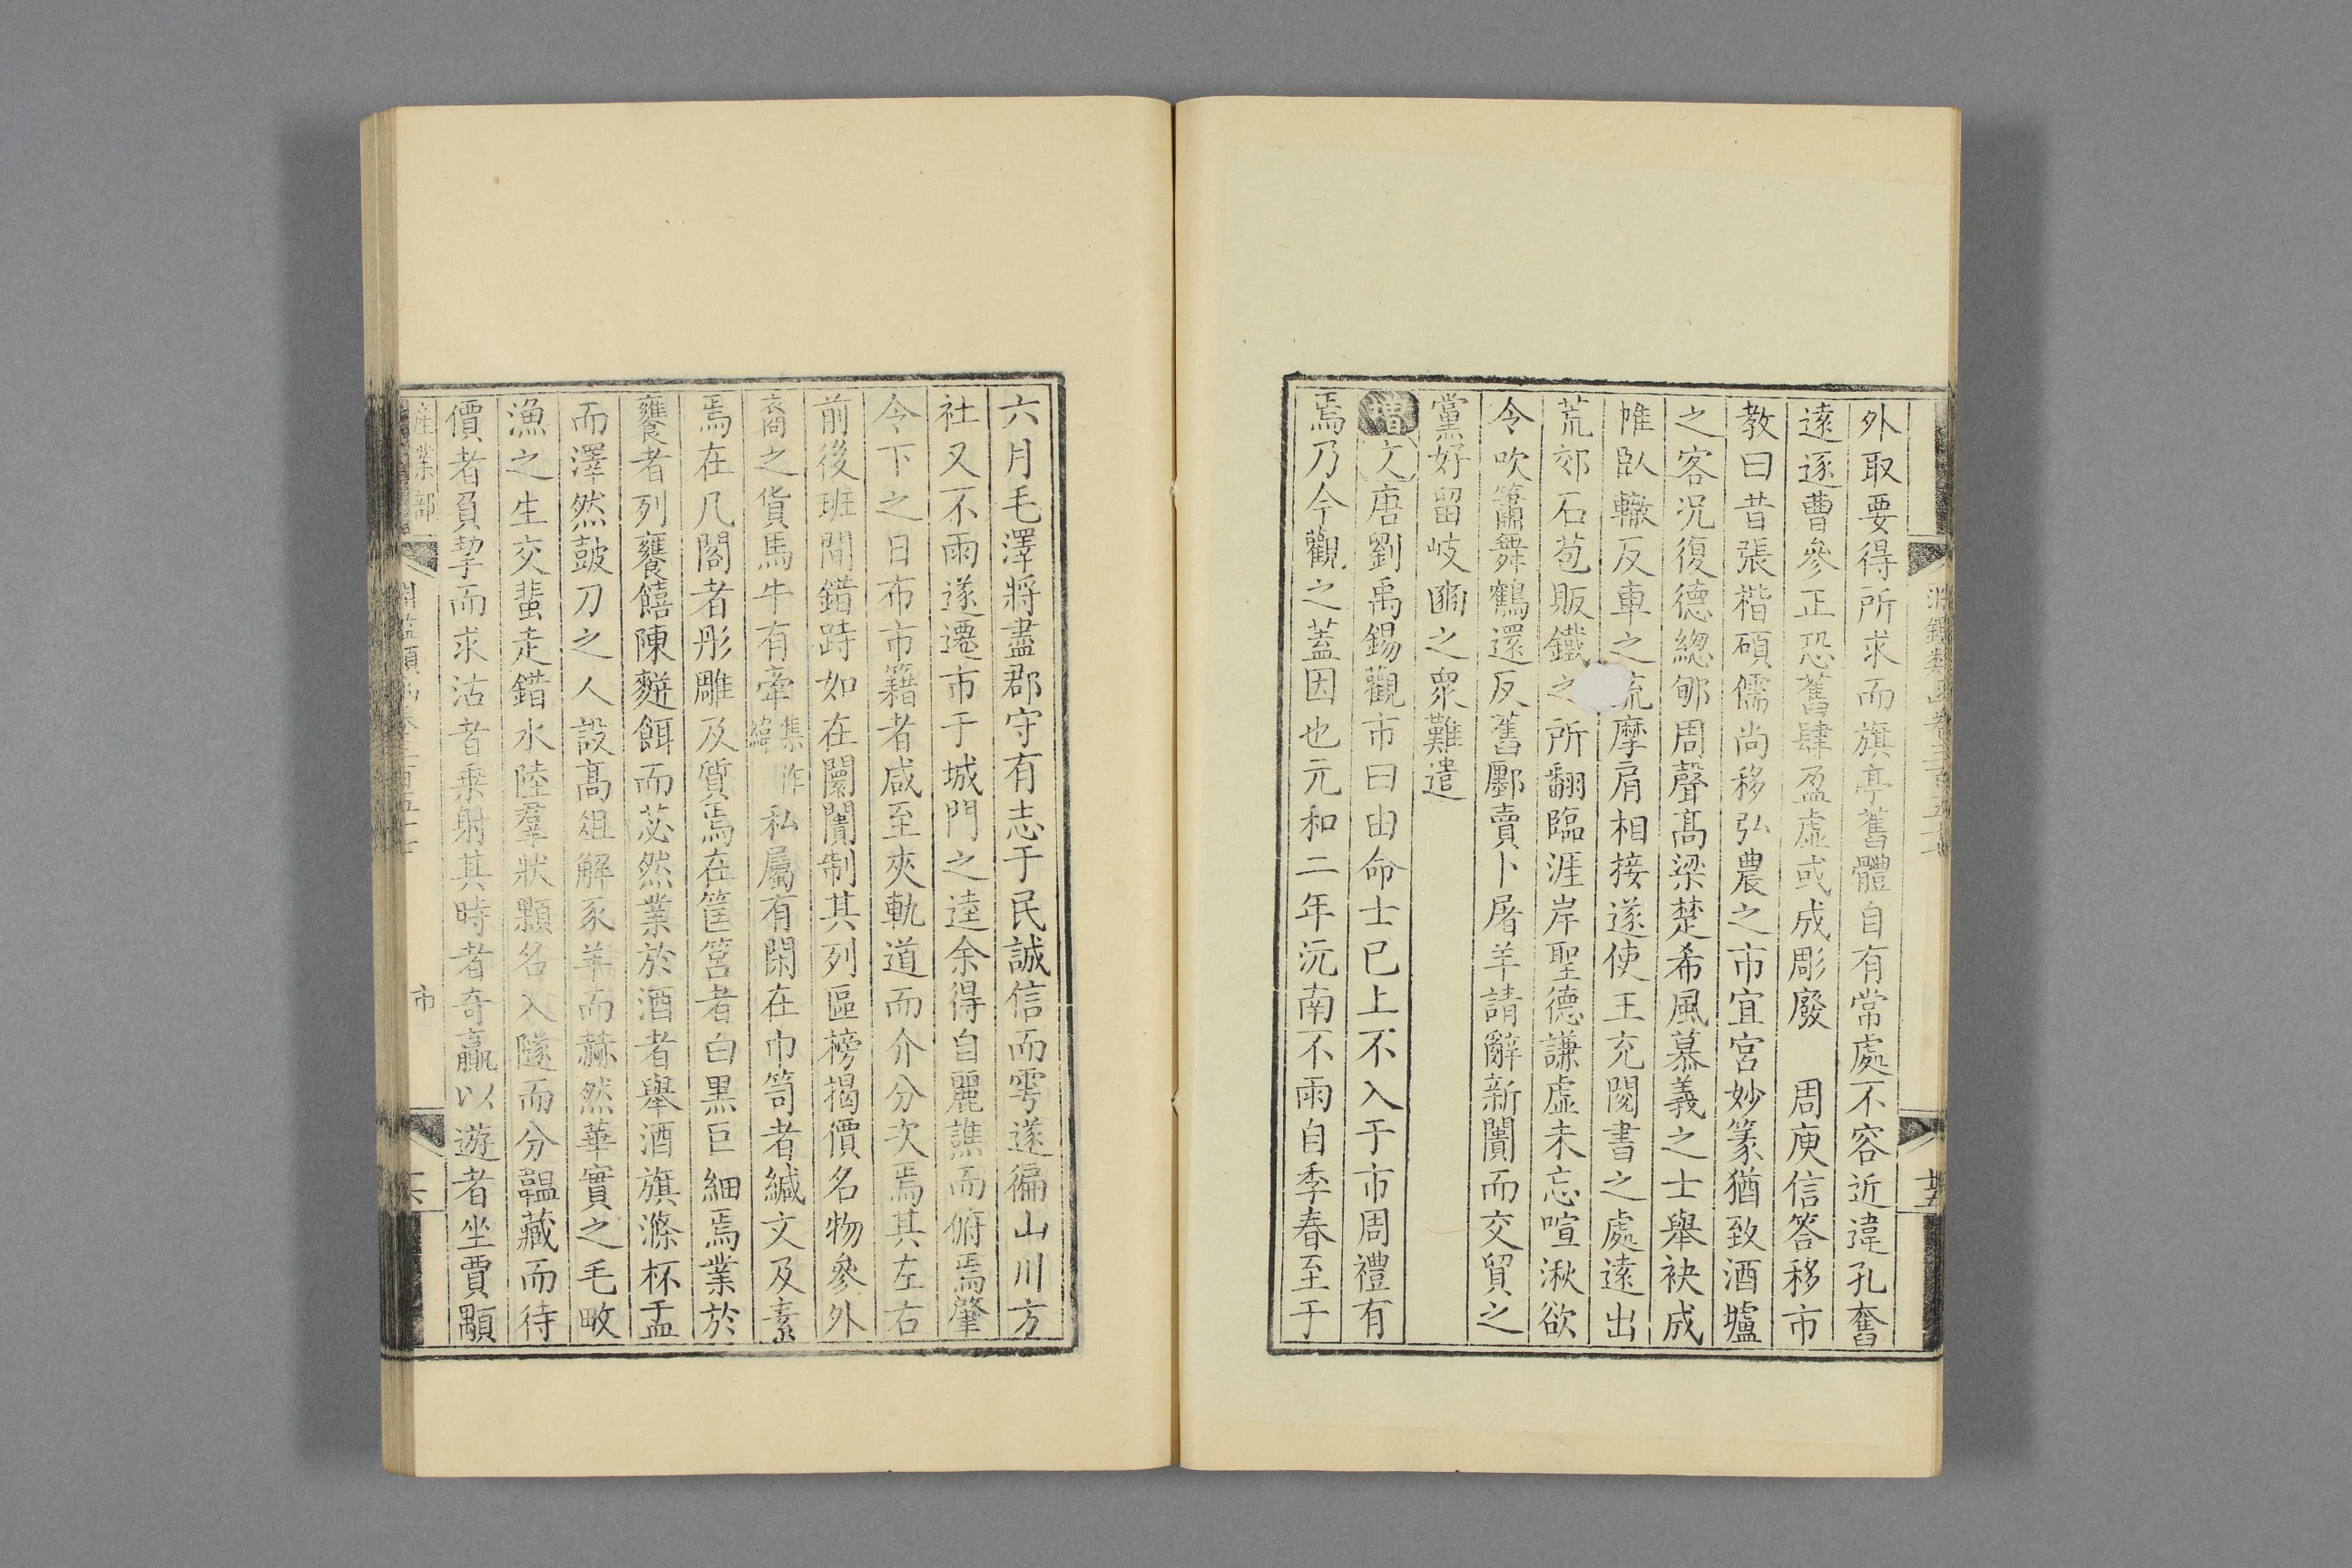 外取要得所求而旗亭舊體自有常處不容近違孔奮
遠逐曹參正恐舊肆盈虛或成彫廢　周庾信答移市
教曰昔張楷碩儒尚移弘農之市宜宮妙篆猶致酒壚
之客況復德總郇周聲高梁楚希風慕義之士舉袂成
帷臥轍反車之流摩肩相接遂使王充閱書之處遠出
荒郊石苞販鐵之所翻臨涯岸聖德謙虛未忘喧湫欲
令吹簫舞鶴還反舊鄽賣卜屠羊請辭新闠而交貿之
黨好留岐豳之眾難遣
增文唐劉禹錫觀市曰由命士已上不入于市周禮有
焉乃今觀之蓋因也元和二年沅南不雨自季春至于
六月毛澤將盡郡守有志于民誠信而雩遂徧山川方
社又不雨遂遷市于城門之逵余得自麗譙而俯焉肇
令下之日布市籍者咸至夾軌道而介分次焉其左右
前後班間錯跱如在闤闠制其列區榜揭價名物參外
裔之貨馬牛有牽集作縴私屬有閑在巾笥者緘文及素
焉在几閣者彤雕及質焉在筐筥者白黑巨細焉業於
饔者列饔饎陳䴵餌而苾然業於酒者舉酒旗滌杯盂
而澤然鼓刀之人設高俎解豕羊而赫然華實之毛畋
漁之生交蜚走錯水陸羣狀顆名入隧而分韞藏而待
價者負挈而求沽者乘射其時者奇贏以遊者坐賈顒
產業部
市